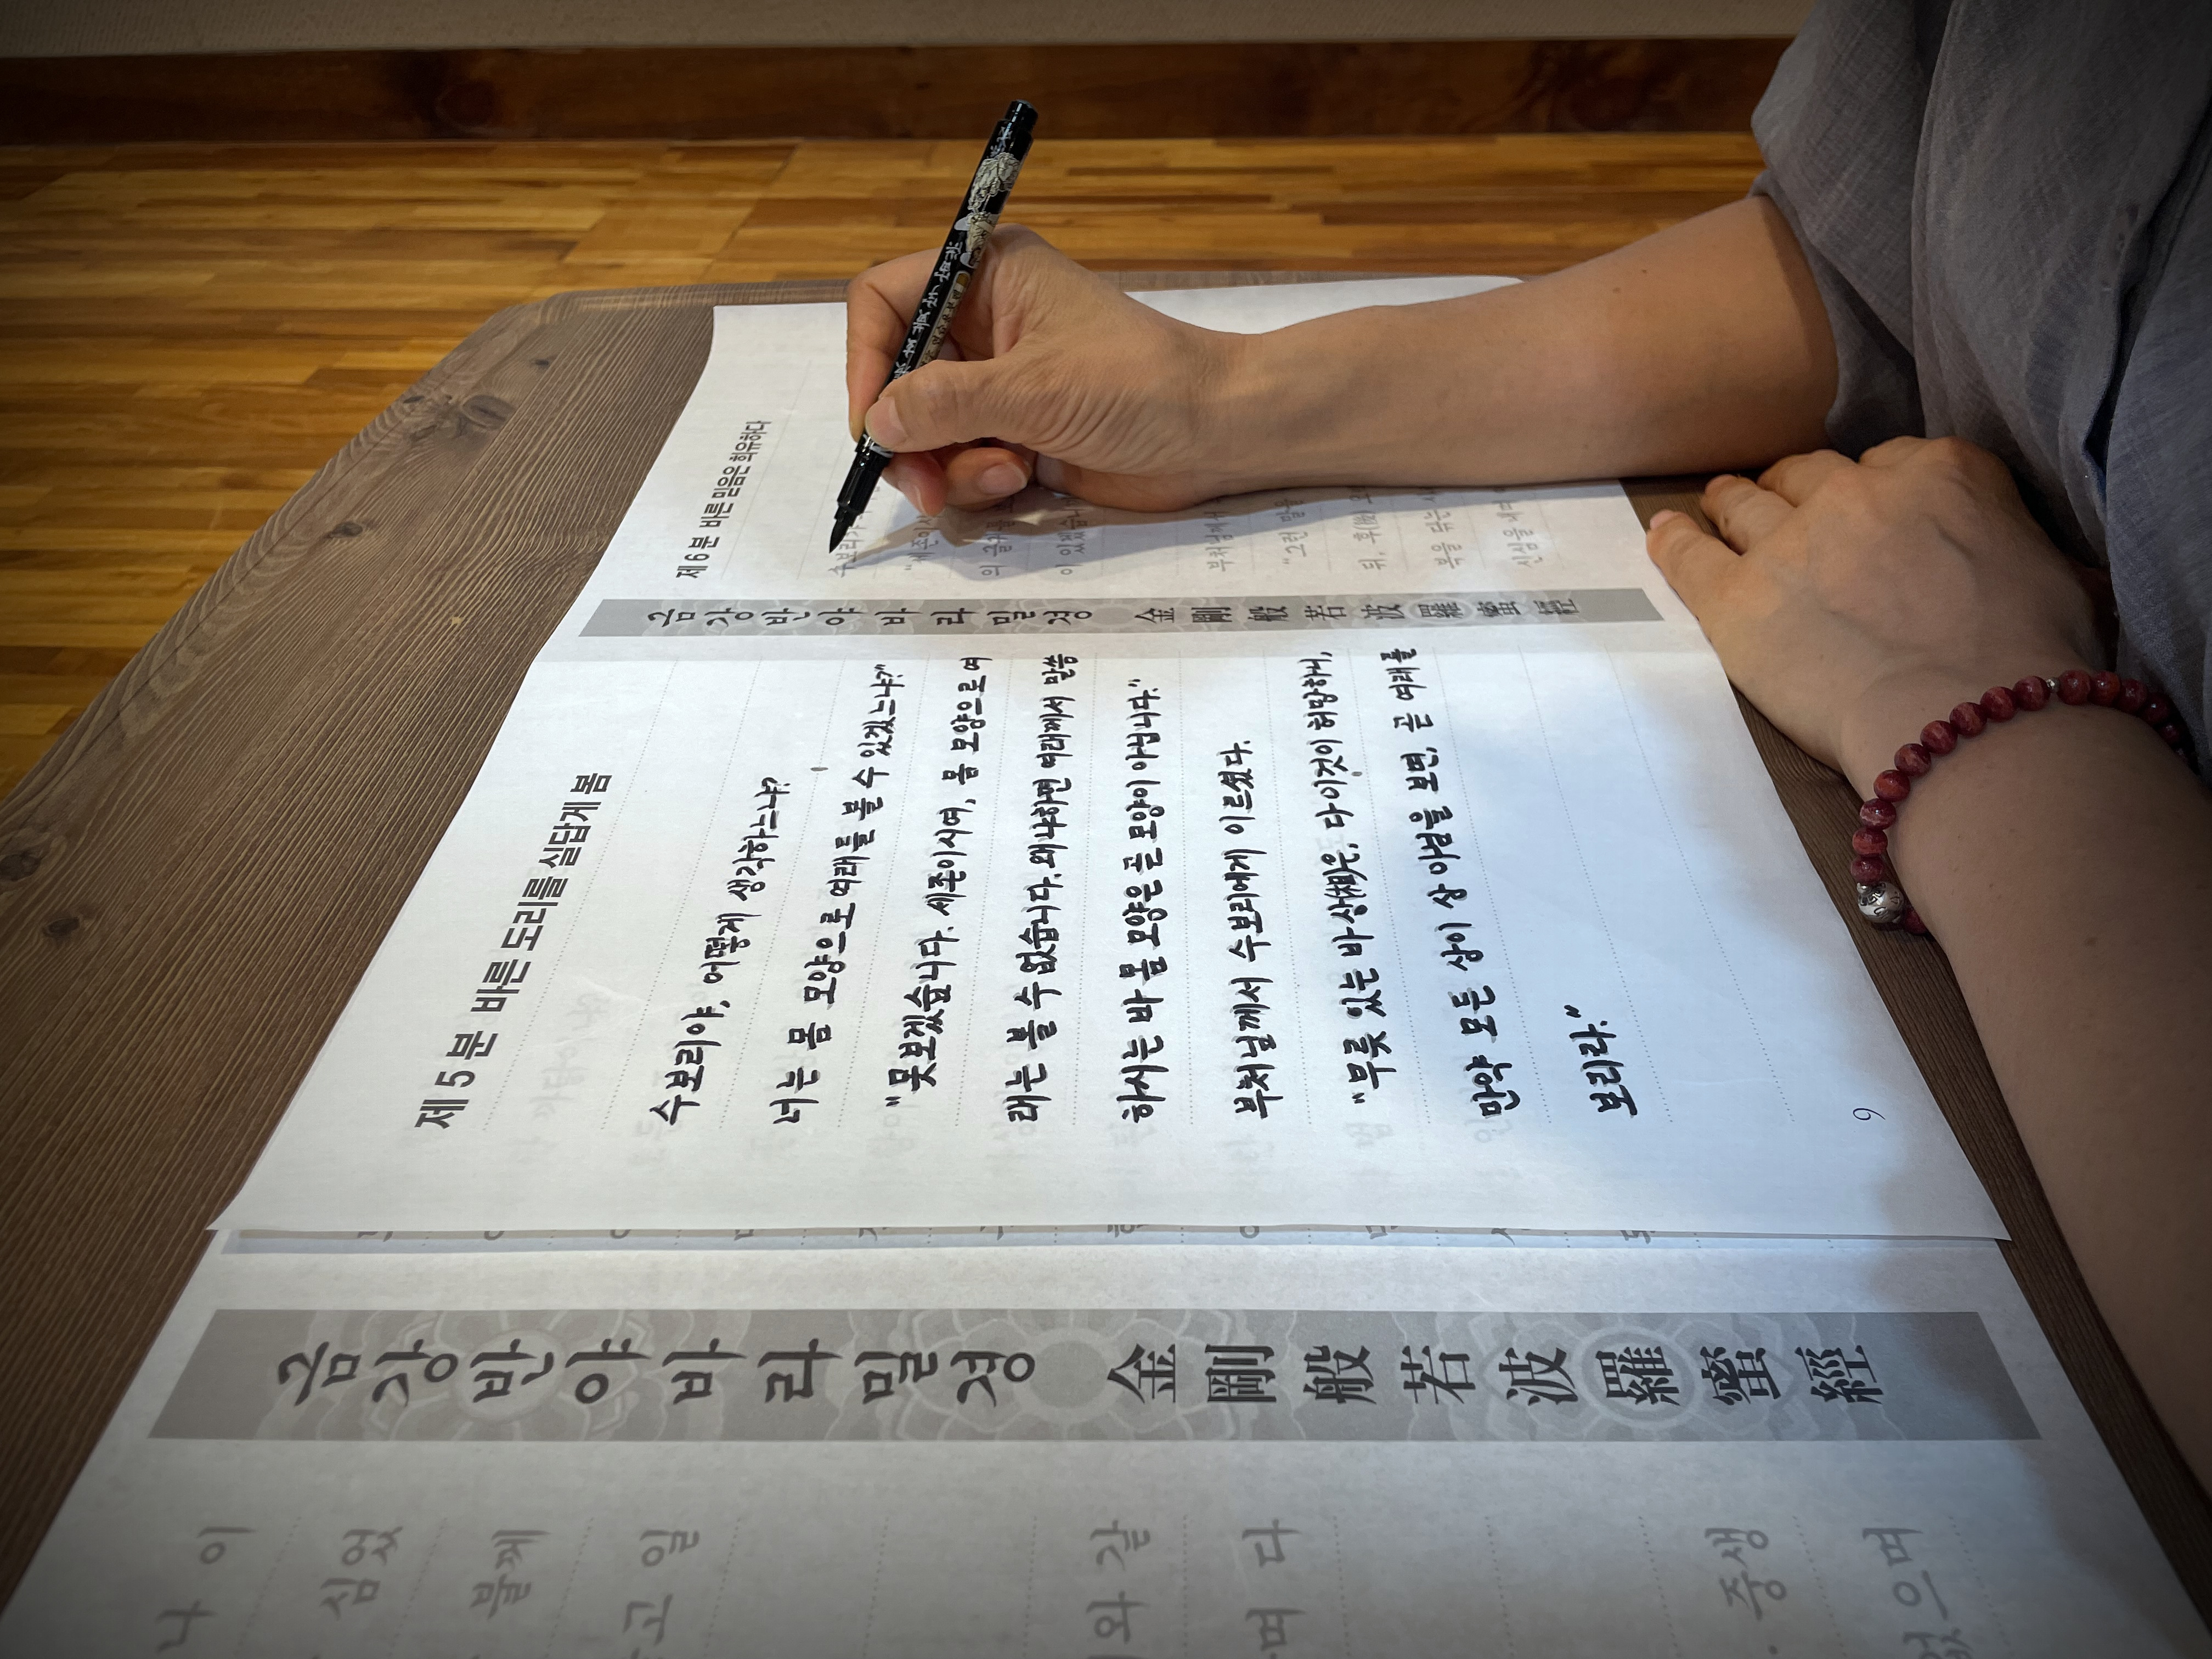 제 5 분 바른 도리를 실답게 봄
수보리야, 어떻게 생각하느냐?
너는 몸 모양으로 여래를 볼 수 있겠느냐?"
"못보겠습니다. 세존이시여, 몸 모양으로 여
래는 볼 수 없습니다. 왜냐하면 여래께서 말씀
하시는 바 몸 모양은 곧 모양이 아닙니다."
부처님께서 수보리에게 이르셨다.
"무릇 있는 바 상(相)은, 다 이것이 허망하니,
만약 모든 상이 상 아님을 보면, 곧 여래를
보리라."
9
금강반야바라밀경 金剛般若波羅蜜經
제 6 분 바른 믿음은 희유하다
수보리가
"세존이시
의 글귀를
이 있겠습니
부처님께서
"그런 말을
뒤, 후(後) 오
복을 닦는
신심을 내며
금강반야바라밀경 金剛般若波羅蜜經
나 이
심었
발께
고 일
와 같
며 다
중생
없으며